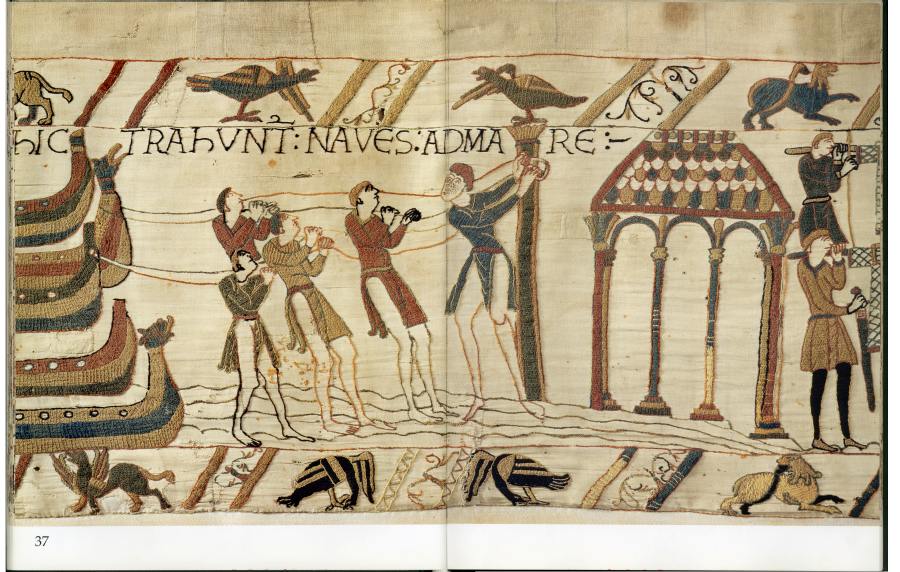 HIC TRAHUNT̄: NAVES: AD MARE :–
37